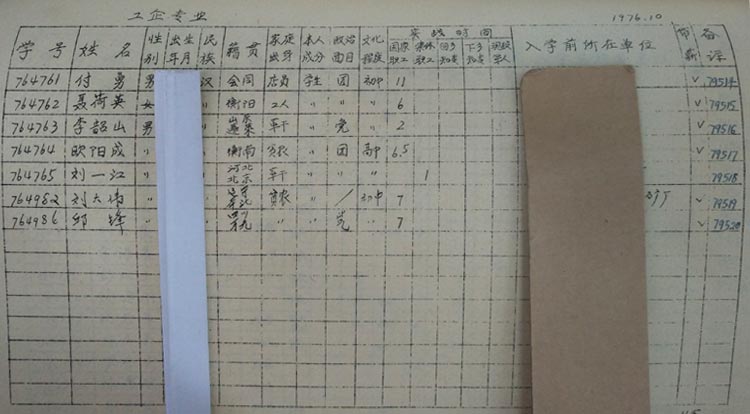 工企专业 1976.10
学号 姓名 性别 出生年月 民族 籍贯 家庭出身 本人成分 政治面目 文化程度 实践时间 国家职工 集体职工 回乡知青 下乡知青 现役军人 入学前所在单位 带薪 备注
764761 付勇 男 汉 会同 店员 学生 团 初中 11 √ 79514
764762 聂荷英 女 〃 衡阳 工人 〃 〃 〃 6 √ 79515
764763 李韶山 男 〃 山东蓬莱 军干 〃 党 〃 2 √ 79516
764764 欧阳成 〃 〃 衡南 贫农 〃 团 高中 6.5 √ 79517
764765 刘一江 〃 〃 河北 军干 〃 〃 〃 1 79518
764982 刘大伟 〃 〃 贫农 〃 / 初中 7 矿厂 √ 79519
764986 邹锋 〃 〃 四川 〃 〃 党 〃 7 √ 79520